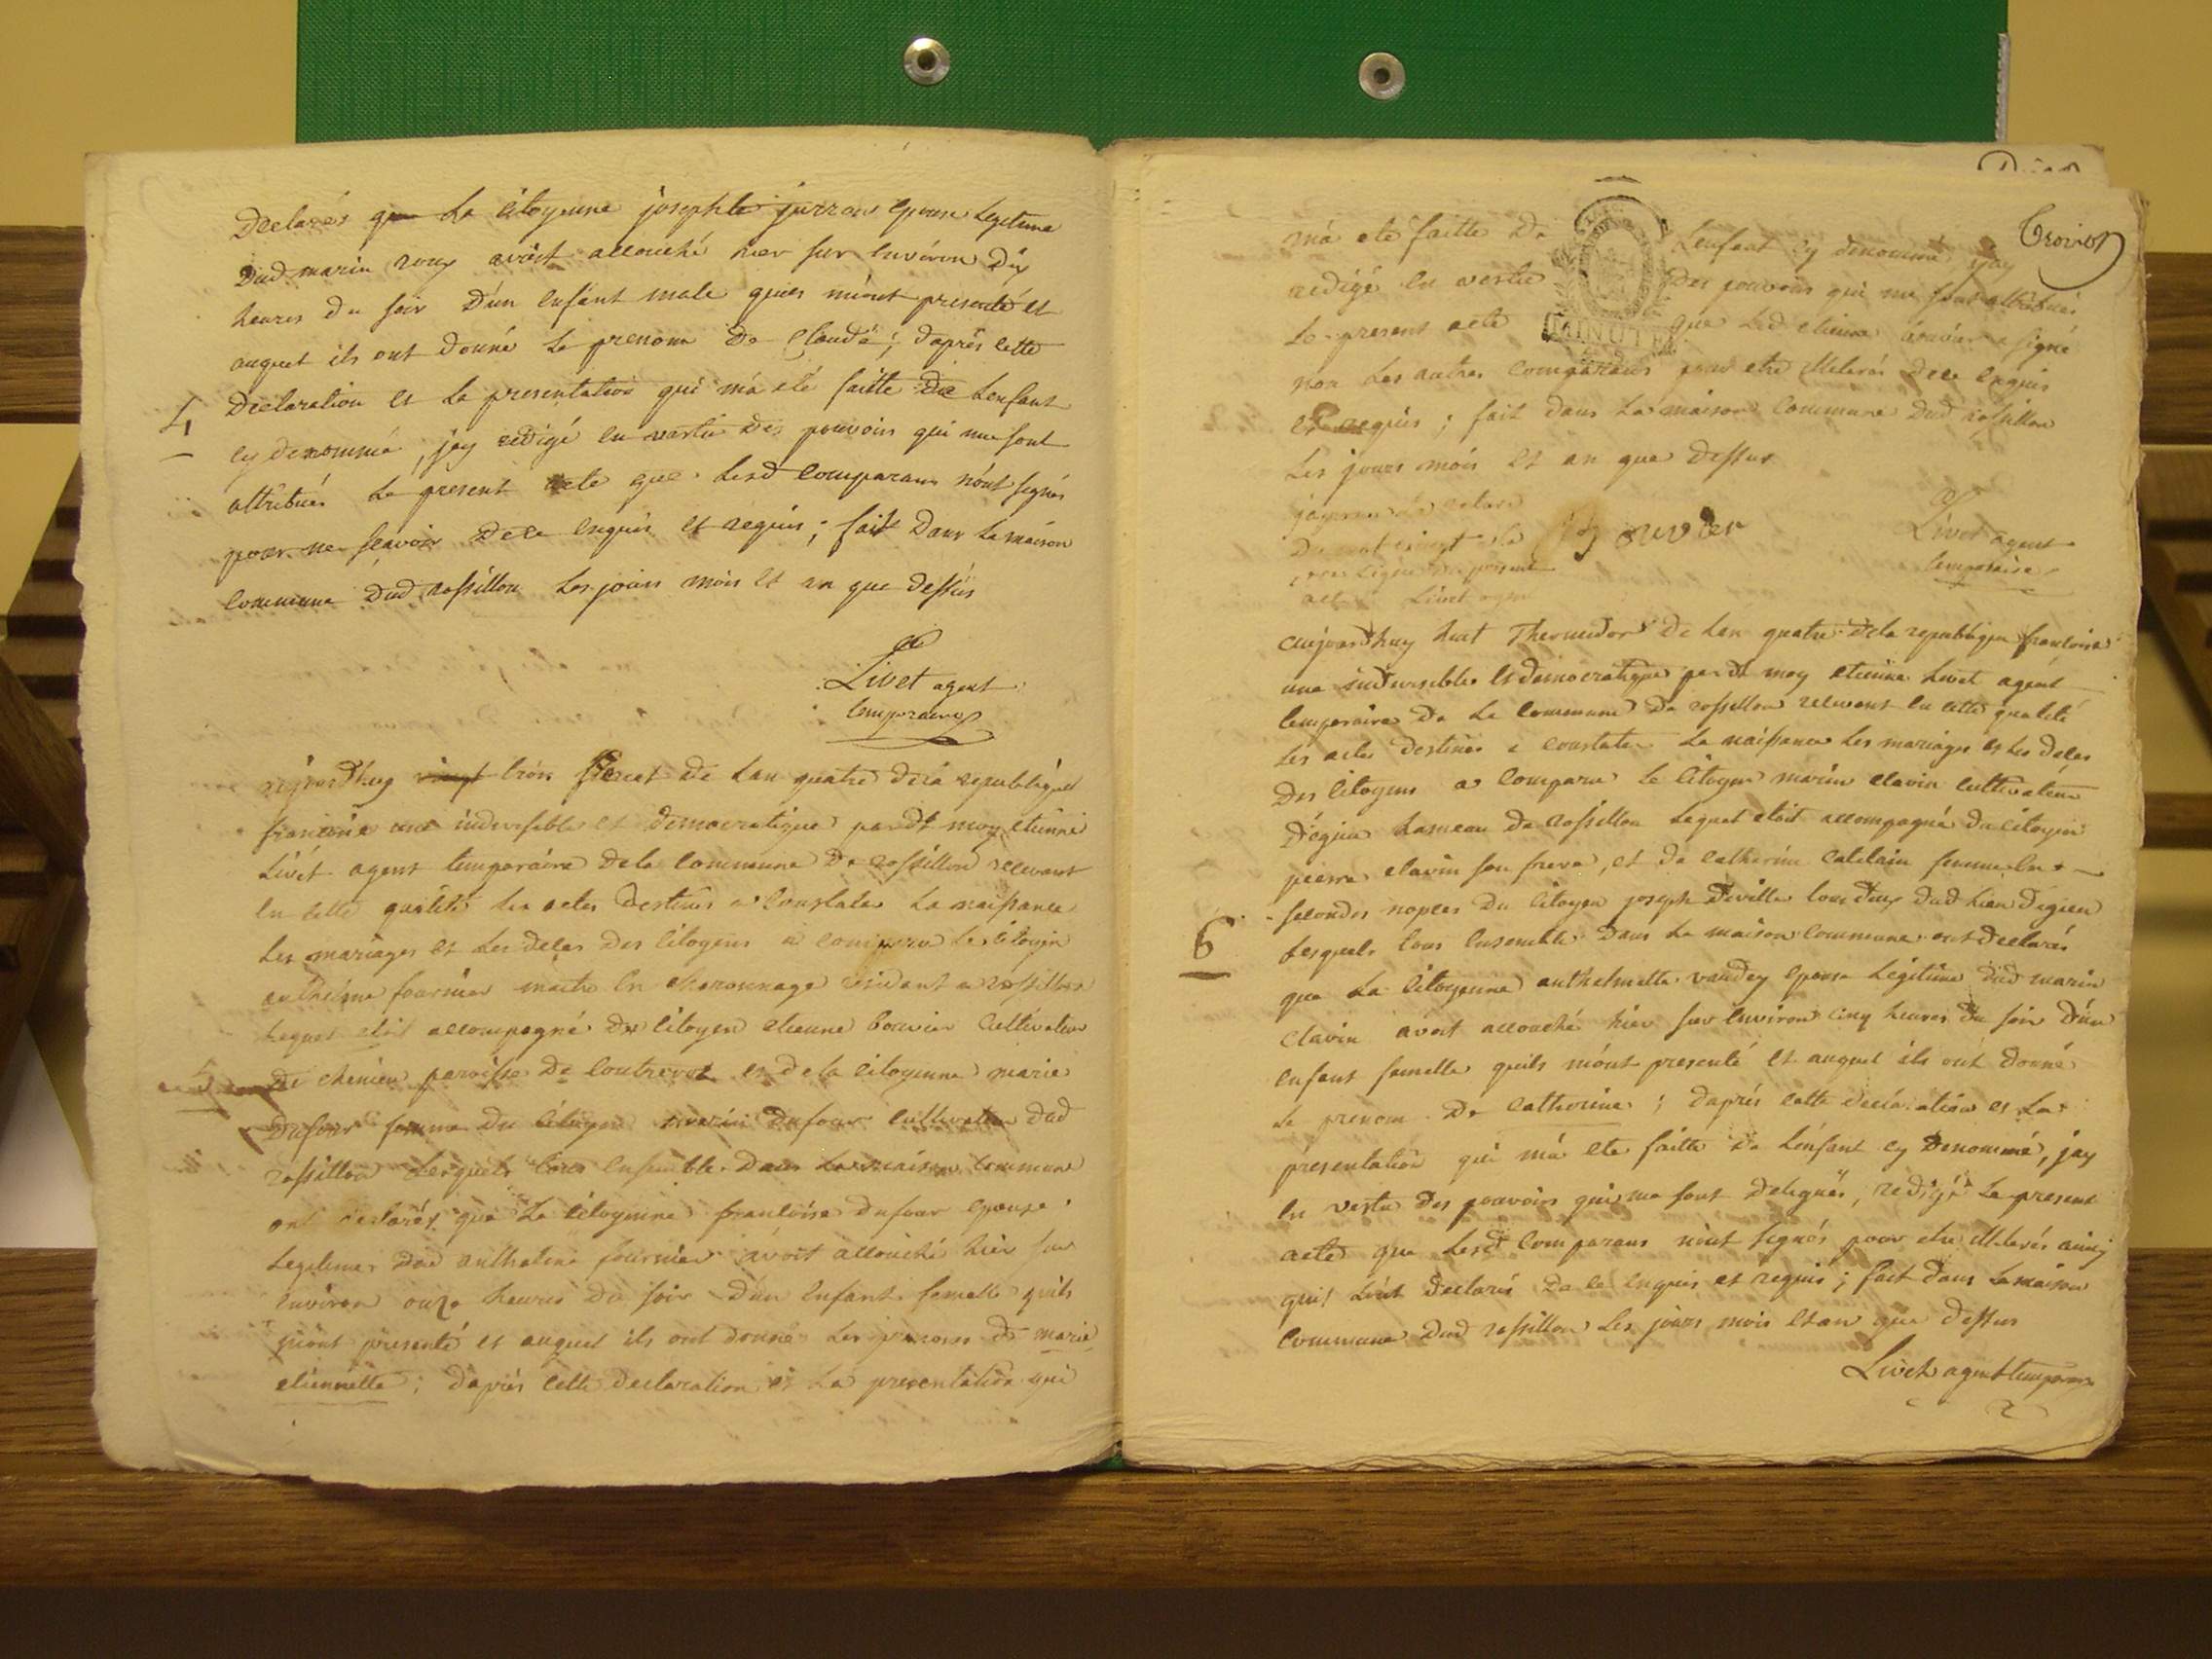 Declarés que La Citoyenne josephte jurron Epouse Legitime
Dud marin roux avoit accouché hier sur Environ Dix
heures du soir D'un Enfant male qu'ils m'ont presenté et
auquel ils ont donné Le prenom De Claude; daprés cette
Declaration et La presentation qui m'a eté faitte De Lenfant
cy denommé, jay redigé en vertu Des pouvoirs qui me sont
attribués Le present acte que Lesd Comparans n'ont signés
pour ne sçavoir De ce Enquis et requis; fait Dans La maison
Commune dud rossillon Les jours mois et an que dessus
4
Livet agent
temporaire
aujourdhuy vingt trois De Lan quatre dela republique
francoise une indivisible et Democratique pardt moy etienne
Livet agent temporaire dela Commune De rossillon recevant
En cette qualité Les actes Destinés a Constater La naissance
Les mariages et Les deces Des Citoyens a Comparu Le citoyen
anthelme fournier maitre En charonnage residant a rossillon
Lequel etoit accompagné Du Citoyen etienne bouvier Cultivateur
5
De chemieu paroisse De Contrevoz et dela Citoyenne marie
Dufour femme Du Citoyen marin Dufour cultivateur dud
rossillon Lesquels tous Ensemble Dans La maison Commune
ont declarés que La Citoyenne francoise dufour Epouse
Legitime dud anthelme fournier avoit accouché hier sur
Environ onze heures Du soir D'un Enfant femelle quils
m'ont presenté et auquel ils ont donné Les prenoms De marie
etiennette; daprés Cette Declaration et La presentation qui
Troison
m'a eté faitte De Lenfant cy denommé, jay
redigé En vertu Des pouvoirs qui me sont attribués
Le present acte que Led etienne bouvier a signé
MINUTE
non Les autres Comparans pour etre illeterés De ce Enquis
Et requis; fait dans La maison Commune Dud rossillon
Les jours mois Et an que Dessus
Du mot vingt
Bouvier
Livet agent
temporaire
Livet agent
aujourdhuy huit Thermidor De Lan quatre dela republique francoise
une indivisible et democratique pardt moy etienne Livet agent
temporaire De La Commune De rossillon recevant En cette qualité
Les actes Destinés a Constater La naissance Les mariages et Les deces
Des Citoyens a Comparu Le Citoyen marin clavin cultivateur
D'egieu hameau De rossillon Lequel etoit accompagné Du Citoyen
pierre clavin son frere, et De catherine femme En
secondes nopces Du Citoyen joseph Deville tous deux dud Lieu Degieu
6
Lesquels tous Ensemble Dans La maison Commune ont declarés
que La Citoyenne anthelmette vaudey Epouse Legitime dud marin
Clavin avoit accouché hier sur Environ cinq heures Du soir D'un
Enfant femelle quils m'ont presenté et auquel ils ont donné
Le prenom De Catherine; daprés cette declaration et La
presentation qui m'a eté faitte De Lenfant cy Denommé, jay
En vertu Des pouvoirs qui me sont delegués, redigé Le present
acte que Lesdt Comparans n'ont signés pour etre illeterés ainsy
quil Lont declarés De ce Enquis et requis; fait Dans La maison
Commune Dud rossillon Les jours mois et an que dessus
Livet agent temporaire